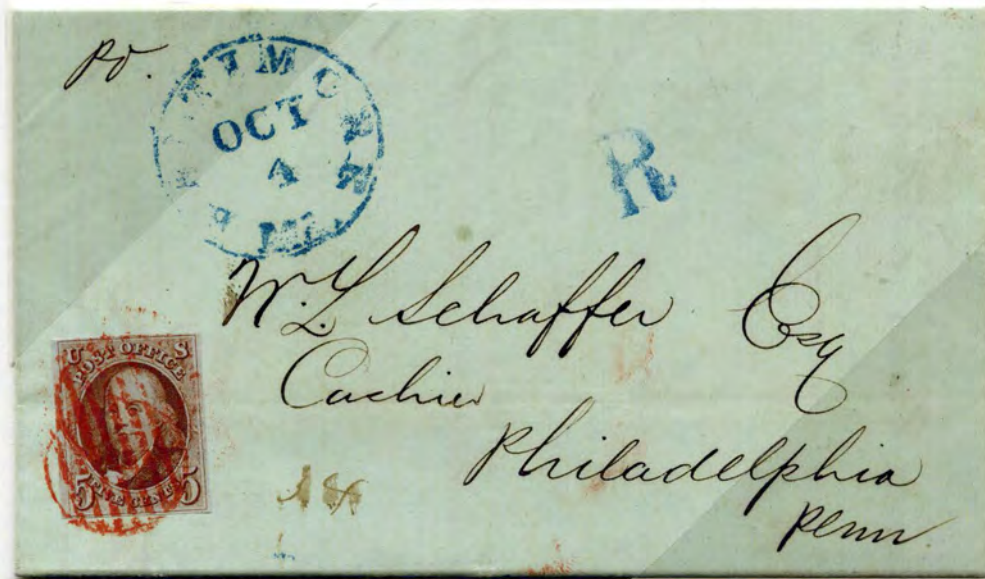 pd.
OCT
4
R
W. L. Schaffer Esq
Cashier
Philadelphia
Penn
U S
POST OFFICE
5 FIVE CENTS 5